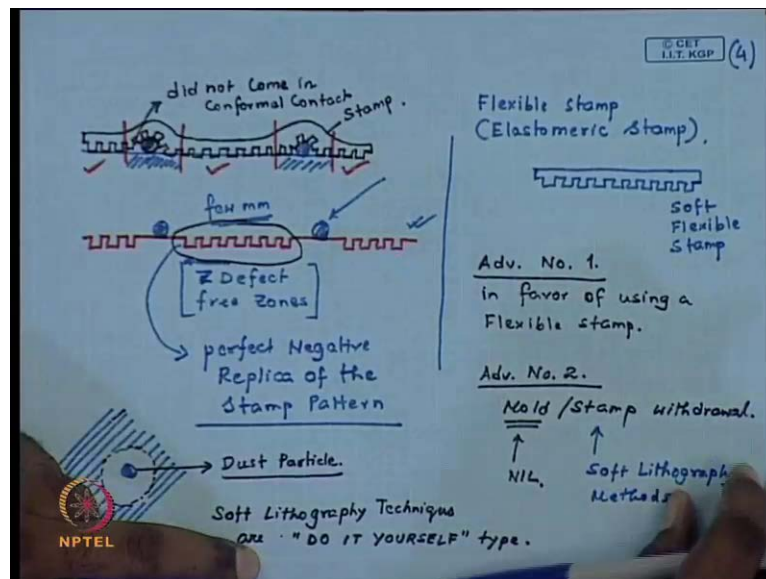 © CET
I.I.T. KGP
(4)
did not Come in
Conformal Contact
Stamp.
few mm
Defect
free Zones
perfect Negative
Replica of the
Stamp Pattern
Dust Particle.
Soft Lithography Techniques
are "DO IT YOURSELF" type.
Flexible Stamp
(Elastomeric Stamp).
Soft
Flexible
Stamp
Adv. No. 1.
in favor of using a
Flexible stamp.
Adv. No. 2.
Mold / Stamp withdrawal.
NIL.
Soft Lithography
Methods
NPTEL